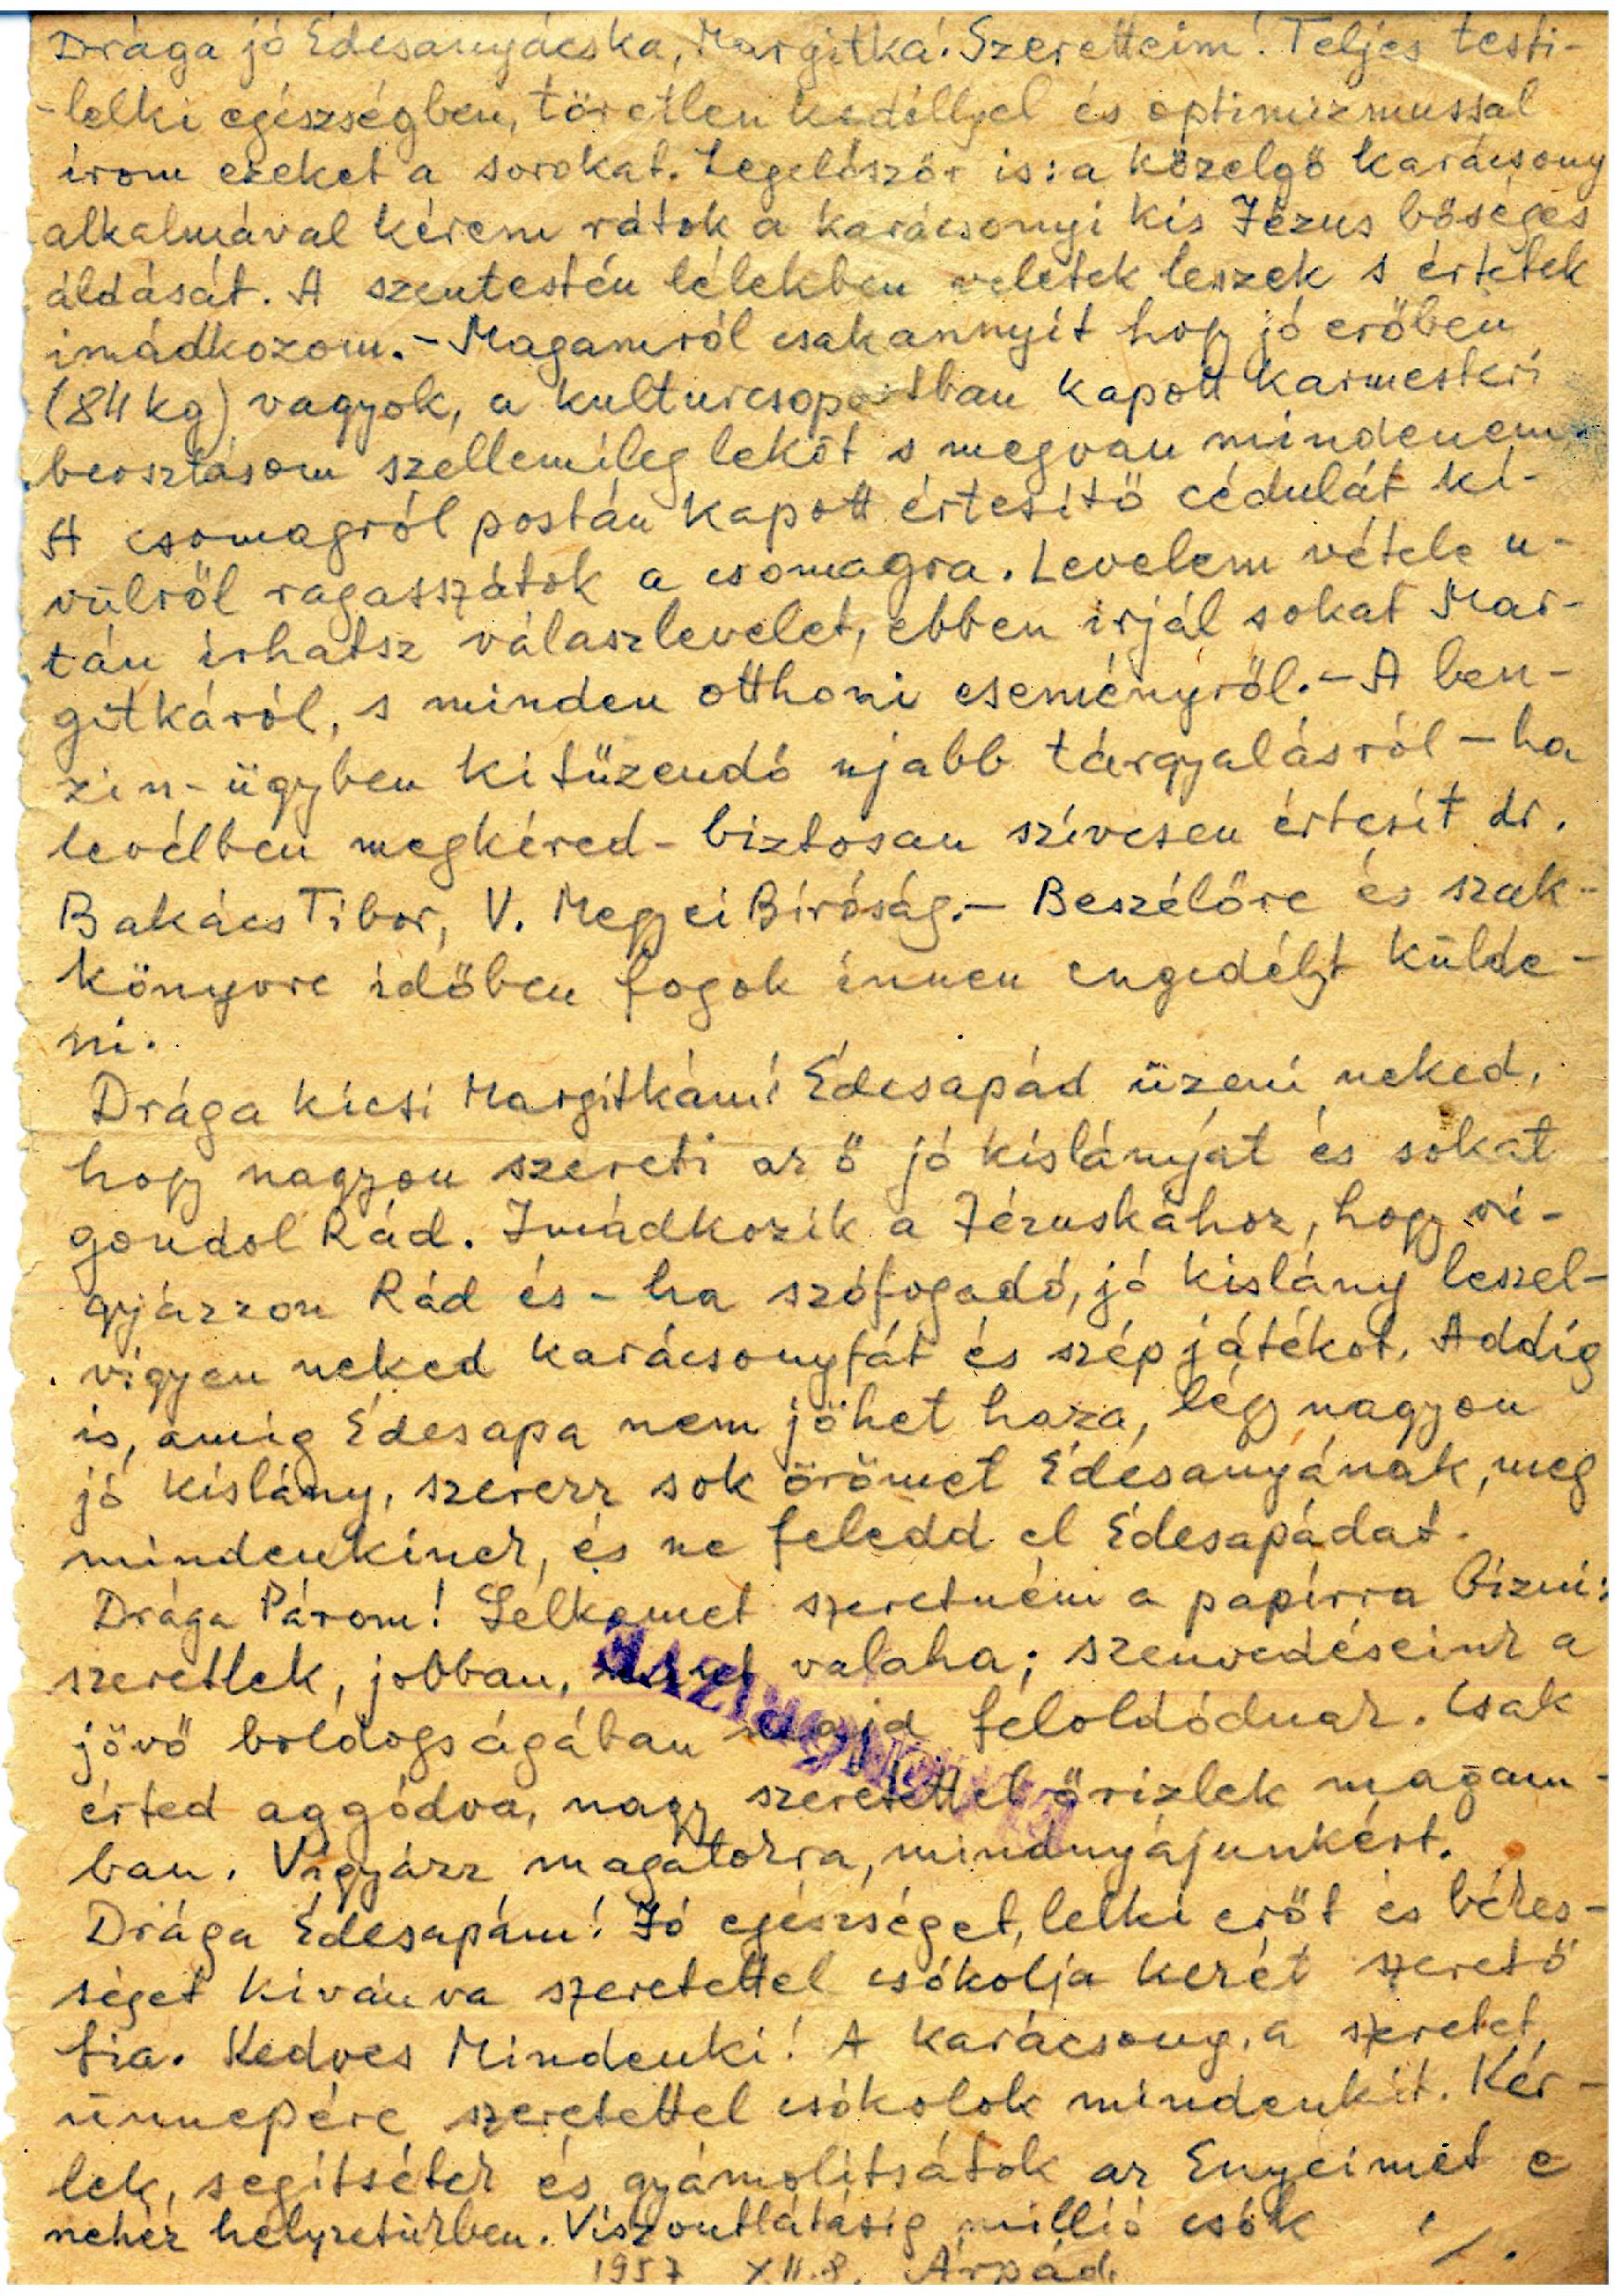 Drága jó Édesanyácska, Margitka! Szeretteim! Teljes testi-
-lelki egészségben, töretlen kedéllyel és optimizmussal
irom ezeket a sorokat. Legelőször is: a közelgő karácsony
alkalmával kérem rátok a karácsonyi kis Jézus bőséges
áldását. A szentestén lélekben veletek leszek s értetek
imádkozom. - Magamról csak annyit hogy jó erőben
(84 kg) vagyok, a kulturcsoportban kapott karmesteri
beosztásom szellemileg leköt s megvan mindenem.
A csomagról postán kapott értesítő cédulát kí-
vülről ragasszátok a csomagra. Levelem vétele u-
tán irhatsz válaszlevelet, ebben irjál sokat Mar-
gitkáról, s minden otthoni eseményről. - A ben-
zin-ügyben kitűzendő ujabb tárgyalásról - ha
levélben megkéred - biztosan szívesen értesít dr.
Bakács Tibor, V. Megyei Bíróság. - Beszélőre és szak-
könyvre időben fogok innen engedélyt külde-
ni.
Drága kicsi Margitkám! Édesapád üzeni neked,
hogy nagyon szereti az ő jó kislányát és sokat
gondol Rád. Imádkozik a Jézuskához, hogy vi-
gyázzon Rád és - ha szófogadó, jó kislány leszel -
vigyen neked karácsonyfát és szép játékot. Addig
is, amig Édesapa nem jöhet haza, légy nagyon
jó kislány, szerezz sok örömet Édesanyának, meg
mindenkinek, és ne feledd el Édesapádat.
Drága Párom! Lelkemet szeretném a papírra bízni:
szeretlek, jobban, mint valaha; szenvedéseink a
jövő boldogságában majd feloldódnak. Csak
érted aggódva, nagy szeretettel őrizlek magam-
ban. Vigyázz magatokra, mindnyájunkért.
Drága Édesapám! Jó egészséget, lelki erőt és békes-
séget kívánva szeretettel csókolja kezét szerető
fia. Kedves Mindenki! A karácsony, a szeretet
ünnepére szeretettel csókolok mindenkit. Kér-
lek, segítsétek és gyámolítsátok az Enyéimet e
nehéz helyzetükben. Viszontlátásig millió csók
1957 XII. 8. Árpád.